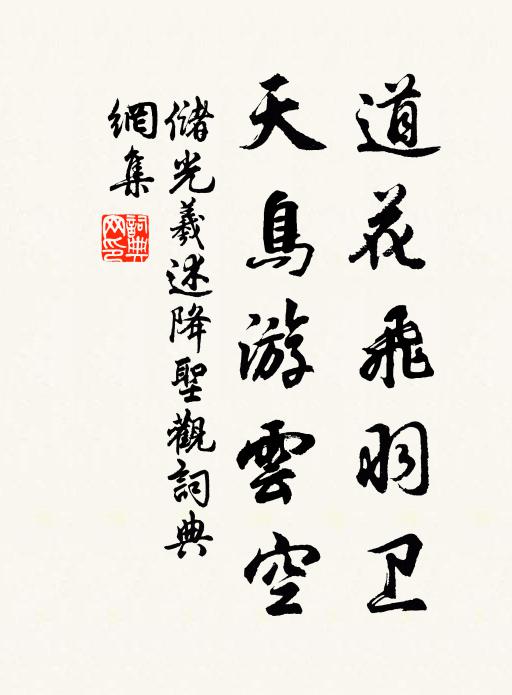 道花飛羽卫
天鳥游雲空
儲光羲述降聖觀詞典
網集
詞典
网印